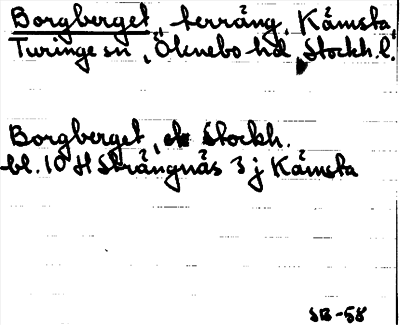 Borgberget, terräng, Kåmsta,
Turinge sn, Öknebo hd, Stockh. l.
Borgberget, ek Stockh.
bl. 10 H Strängnäs 3 j Kåmsta
SB-58